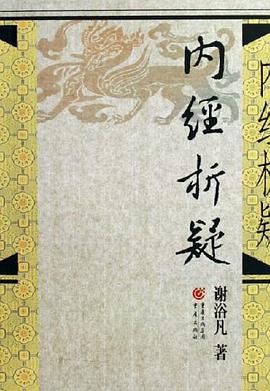 内經析疑
谢浴凡 著
重庆出版集团
重庆出版社
内经析疑